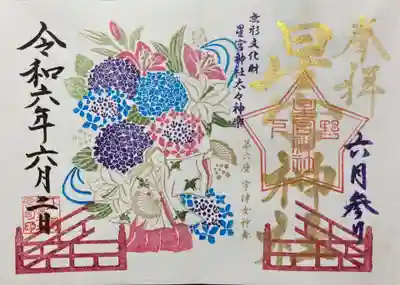 奉拝
星宮神社
六月参り
無形文化財
星宮神社太々神楽
第六座 宇津女神楽
令和六年六月二日